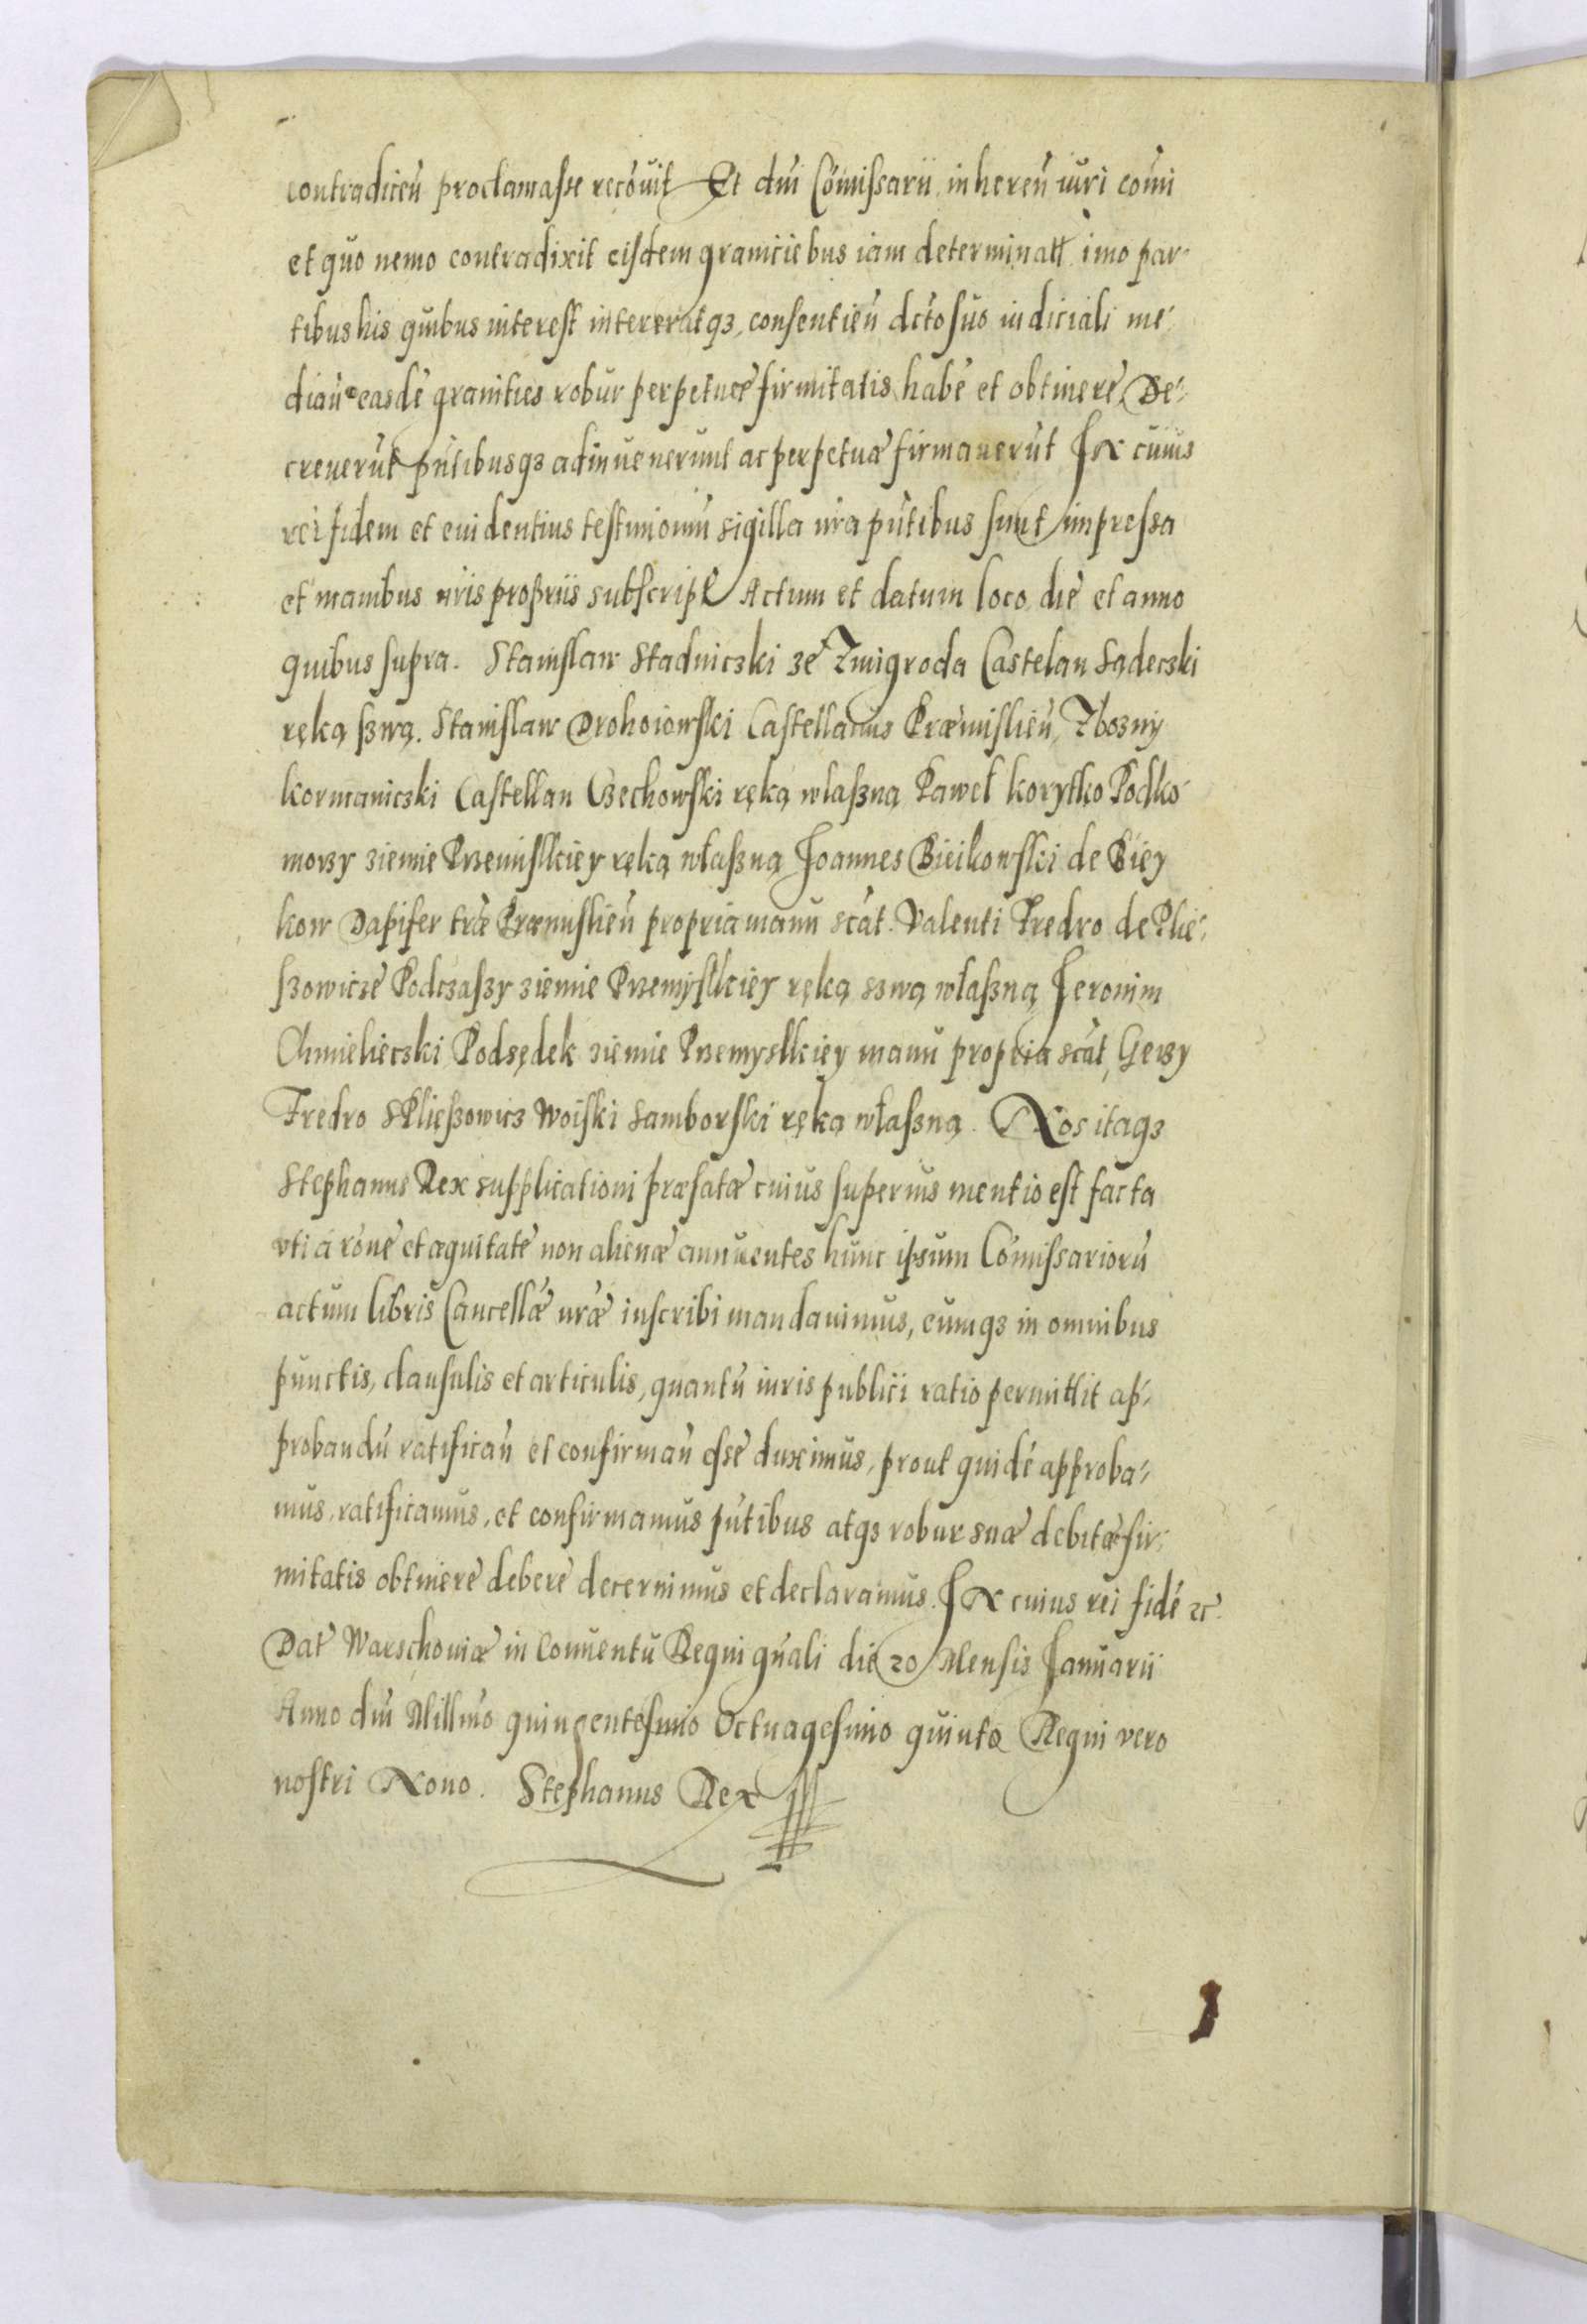 contradiceñ proclamasse recõuit Et dñi Cõmissarii inhereñ iuri cõmi
et quo nemo contradixit eisdem graniciebus iam determinatt imo par-
tibus his quibus interest intereratq3, consentieñ dcto suo iudiciali me-
diañ easdē granities robur perpetuæ firmitatis habē et obtinere De-
creuerũt pñtibusq3 adinuenerunt ac perpetuæ firmauerũt In cuius
rei fidem et euidentius testimoniũ sigilla ñra pñtibus sunt impressa
et manibus ñris propriis subscript Actum et datum loco die et anno
quibus supra. Stanislaw Stadniczki ze Zmigroda Castelan Sądeczki
ręką szwą. Stanislaw Drohoiowski Castellanus Præmislieñ, Zbozny
kormaniczki Castellan Czechowski ręką właszną Paweł korytko Podko-
morzy ziemie Przemislkiey ręką właszną Joannes Bieikowski de Biey
kow Dapifer træ Præmislieñ propria manu scãt. Valenti Fredro de Plie-
szowicze Podczaszy ziemie Przemyslkiey ręką szwą właszną Jeronim
Chmieliecski Podsędek ziemie Przemyslkiey manu propria scãt, Gerzy
Fredro S Plieszowicz Woiski Samborski ręką właszną. Nos itaq3
Stephanus Rex supplicationi præfatæ cuius superius mentio est facta
vti a rõne et æquitate non alienæ annuentes hunc ipsum Cõmissariorũ
actum libris Cancellæ ñræ inscribi mandauimus, eumq3 in omnibus
punctis, clausulis et articulis, quantũ iuris publici ratio permittit ap-
probandũ ratificañ et confirmañ esse duximus, prout quidē approba-
mus, ratificamus, et confirmamus pñtibus atq3 robur suæ debitæ fir-
mitatis obtinere debere decernimus et declaramus. In cuius rei fidē 2c.
Dat Warschouiæ in Conuentu Regni gñali die 20 Mensis Januarii
Anno dñi Millmo quingentesimo Octuagesimo quinto Regni vero
nostri Nono. Stephanus Rex